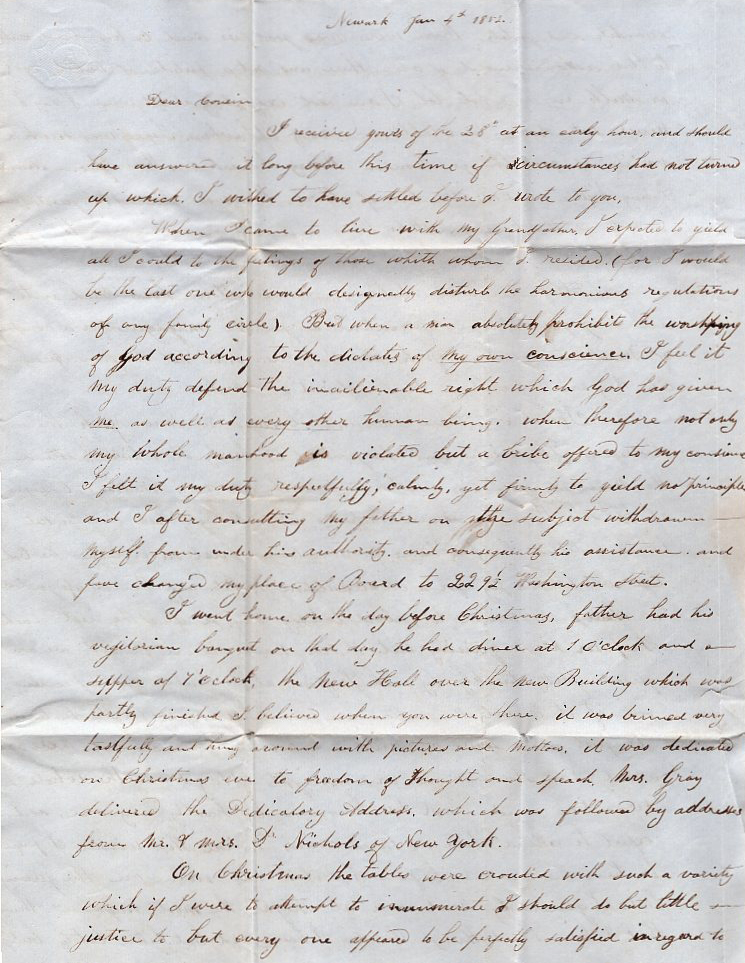 Newark Jan 4th 1853.
Dear Cousin
I received yours of the 28th at an early hour, and should
have answered it long before this time if circumstances had not turned
up which, I wished to have settled before I wrote to you.
When I came to live with my Grandfather, I expected to yield
all I could to the feelings of those whith whom I resided. (for I would
be the last one who would designedly disturb the harmonious regulations
of any family circle). But when a man absolutely prohibit the worshiping
of God according to the dictates of my own conscience. I feel it
my duty defend the inailienable right which God has given
me. as well as every other human being. when therefore not only
my whole manhood is violated but a bribe offered to my consience
I felt it my duty respectfully, calmly, yet firmly to yield no principle
and I after consulting my father on the subject withdrawn
myself. from under his authority. and consequently his assistance. and
have changed my place of Board to 229½ Washington Street.
I went home on the day before Christmas, father had his
vegitarian banquet on that day he had diner at 1 O'clock and a
supper at 7 o'clock. the New Hall over the new Building which was
partly finished I believed when you were there. it was trimed very
tastfully and hung around with pictures and Mottoes. it was dedicated
on Christmas eve to freedom of Thought and speach. Mrs. Gray
delivered the Dedicatory Address. which was followed by addresses
from Mr. & Mrs. Dr Nichols of New York.
On Christmas the tables were crouded with such a variety
which if I were to attempt to innumerate I should do but little
justice to but every one appeared to be perfectly satisfied in regard to